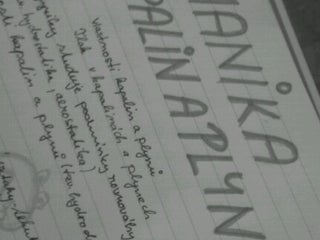 ANIKA
PALIN A PLYN
vlastnosti kapalin a plynů
tlak v kapalinách a plynech
studuje podmínky rovnováhy
hydrostatika, aerostatika)
kapalin a plynů (tzv hydrod